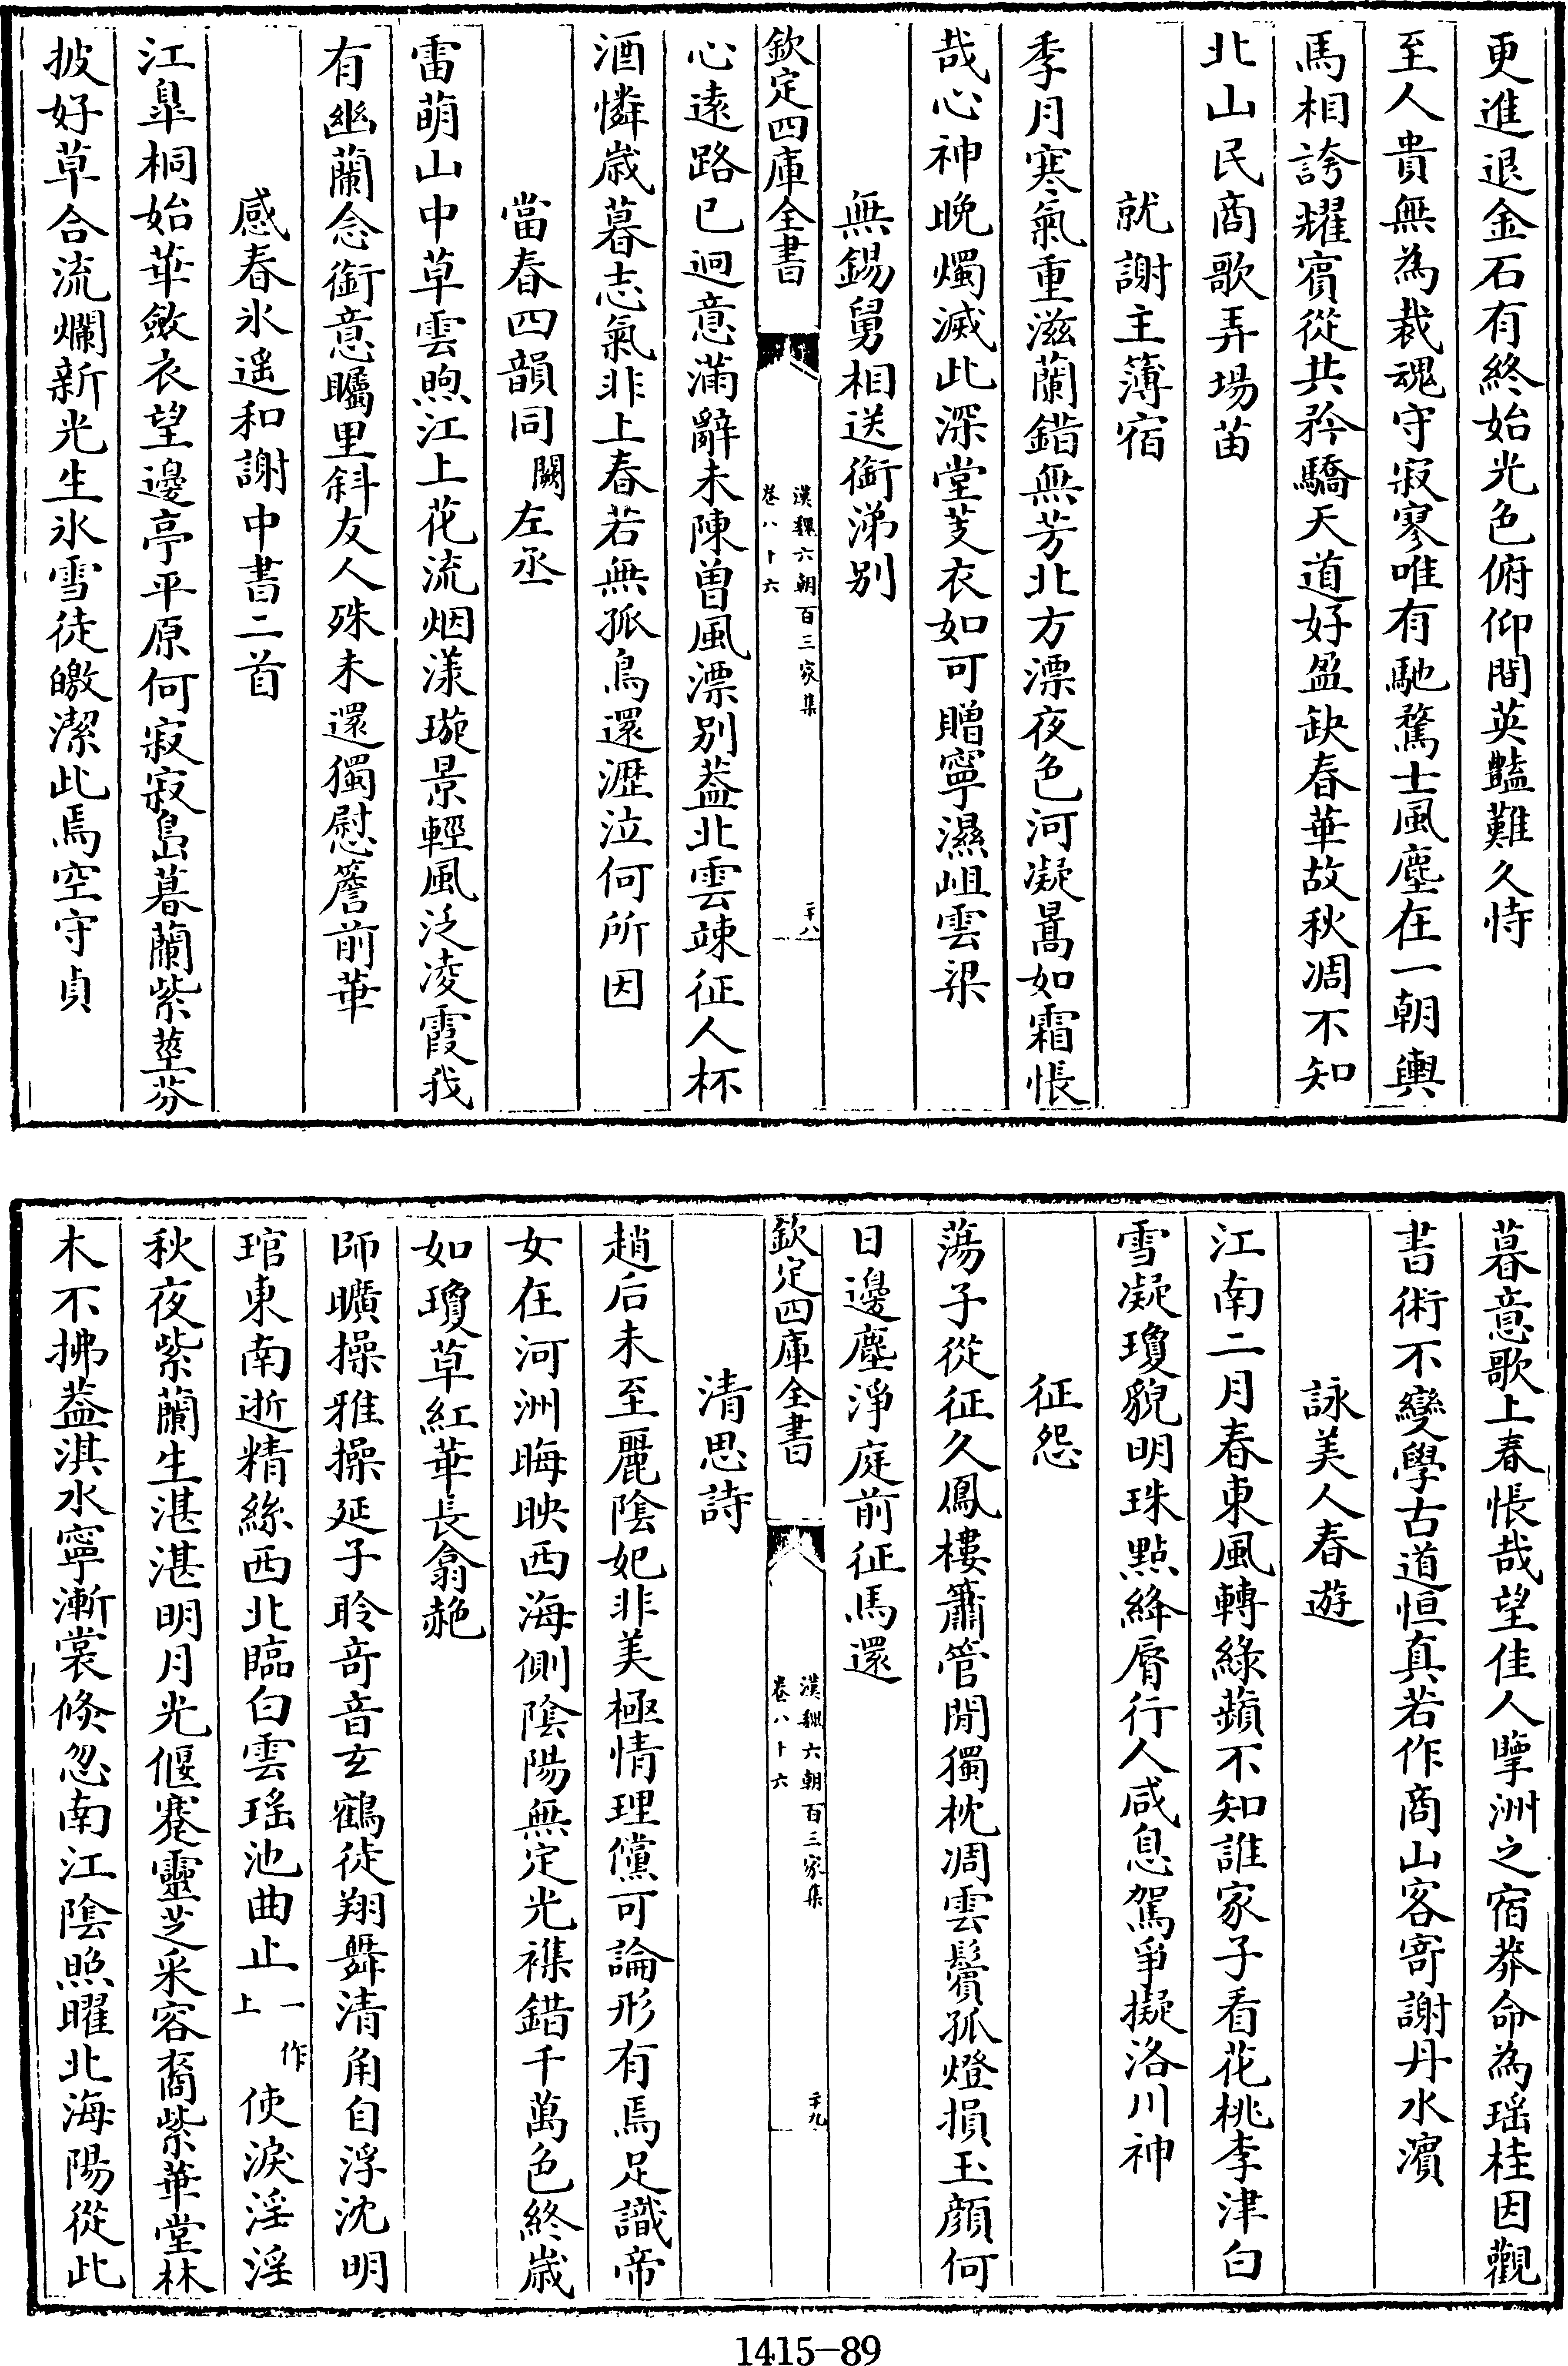 更進退金石有終始光色俯仰間英豔難久恃
至人貴無為裁魂守寂寥唯有馳騖士風塵在一朝輿
馬相誇耀賓從共矜驕天道好盈缺春華故秋凋不知
北山民商歌弄場苗
就謝主簿宿
季月寒氣重滋蘭錯無芳北方漂夜色河凝暠如霜悵
哉心神晚燭滅此深堂芰衣如可贈寧濕岨雲梁
無錫舅相送銜涕别
欽定四庫全書
漢魏六朝百三家集
卷八十六
二十八
心遠路已迥意滿辭未陳曽風漂别葢北雲竦征人杯
酒憐歳暮志氣非上春若無孤鳥還瀝泣何所因
當春四韻同闕左丞
雷萌山中草雲煦江上花流烟漾璇景輕風泛凌霞我
有幽蘭念銜意矚里斜友人殊未還獨慰簷前華
感春氷遥和謝中書二首
江臯桐始華斂衣望邊亭平原何寂寂島暮蘭紫莖芬
披好草合流爛新光生氷雪徒皦潔此焉空守貞
暮意歌上春悵哉望佳人擥洲之宿莽命為瑶桂因觀
書術不變學古道恒真若作商山客寄謝丹水濱
詠美人春遊
江南二月春東風轉綠蘋不知誰家子看花桃李津白
雪凝瓊貌明珠點絳脣行人咸息駕爭擬洛川神
征怨
蕩子從征久鳳樓簫管閒獨枕凋雲鬢孤燈損玉顔何
日邊塵淨庭前征馬還
欽定四庫全書
漢魏六朝百三家集
卷八十六
二十九
清思詩
趙后未至麗陰妃非美極情理儻可論形有焉足識帝
女在河洲晦映西海側陰陽無定光襍錯千萬色終歳
如瓊草紅華長翕赩
師曠操雅操延子聆竒音玄鶴徒翔舞清角自浮沈明
琯東南逝精絲西北臨白雲瑶池曲止一作上使淚淫淫
秋夜紫蘭生湛湛明月光偃蹇靈芝采容裔紫華堂林
木不拂葢淇水寧漸裳倐忽南江陰照曜北海陽從此
1415-89